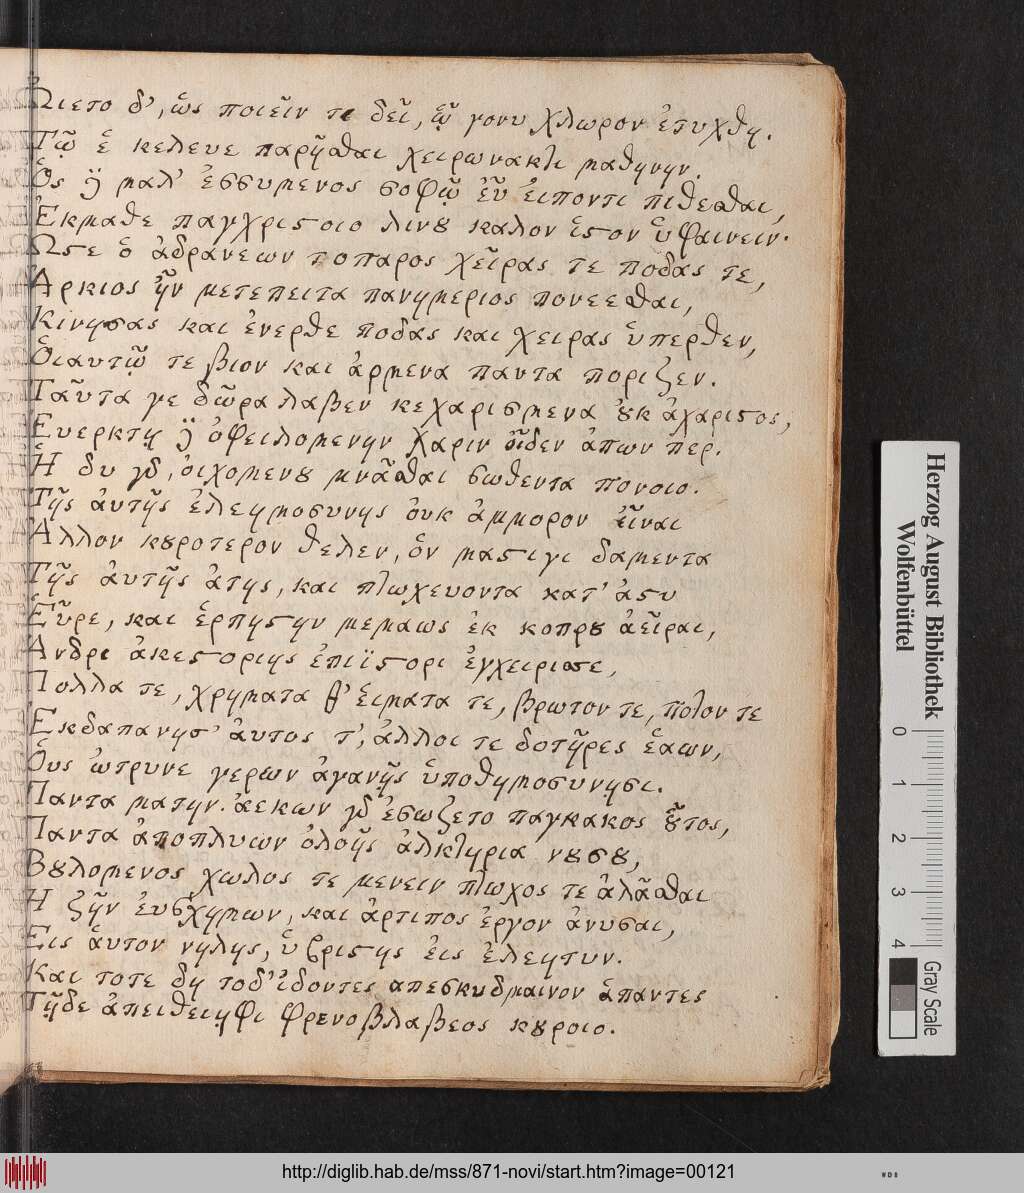 Ὤιετο δ', ὥς ποιεῖν τε δεῖ, ᾧ γονυ χλωρον ἐτυχθη.
Τῷ ἑ κελευε παρῆσθαι χειρωνακτι μαθηνην.
Ὅς ȣ̓ μαλ' ἐσσυμενος σοφῷ εὖ ἐιποντι πιθεσθαι,
Ἐκμαθε παγχριστοιο λινȣ καλον ἱστον ὑφαινειν.
Ὥστε ὁ ἀδρανεων τοπαρος χεῖρας τε ποδας τε,
Ἀρκιος ἦν μετεπειτα πανημεριος πονεεσθαι,
Κινησας και ἐνερθε ποδας και χειρας ὑπερθεν,
Ὁιαυτῷ τε βιον και ἀρμενα παντα ποριζεν.
Ταῦτα γε δῶρα λαβεν κεχαρισμενα ȣκ ἀχαριστος,
Ἐυερκτῃ ȣ̓ ὀφειλομενην χαριν οἶδεν ἀπων περ.
Ἠ δυ γδ, οἰχομενȣ μνᾶσθαι σωθεντα πονοιο.
Τῆς ἀυτῆς ἐλεημοσυνης ὀυκ ἀμμορον εἶναι
Ἀλλον κȣροτερον θελεν, ὁν μαστιγι δαμεντα
Τῆς ἀυτῆς ἀτης, και πτωχευοντα κατ' ἀστυ
Εὗρε, και ἑρπηστην μεμαως ἐκ κοπρȣ ἀεῖραι,
Ἀνδρι ἀκεστοριης ἐπιϊστορι ἐγχειρισε,
Πολλα τε, χρηματα θ' ἑιματα τε, βρωτον τε, ποτον τε
Ἐκδαπανησ' ἀυτος τ', ἀλλοι τε δοτῆρες ἐαων,
Ὅυς ὠτρυνε γερων ἀγανῇς ὑποθημοσυνησι.
Παντα ματην. ἀεκων γδ ἐσωζετο παγκακος ȣ̓τος,
Παντα ἀποπλυων ὀλοῆς ἀλκτηρια νȣσȣ,
Βȣλομενος χωλος τε μενειν πτωχος τε ἀλᾶσθαι
Ἠ ζῆν ἐυσχημων, και ἀρτιπος ἐργον ἀνυσαι,
Εις ἁυτον νηλης, ὑβριστης ἐις ἐλεητυν.
Και τοτε δη τοδ' ἰδοντες απεσκυδμαινον ἁπαντες
Τῇδε ἀπειθειῃφι φρενοβλαβεος κȣροιο.
Herzog August Bibliothek
Wolfenbüttel
0 1 2 3 4
Gray Scale
http://diglib.hab.de/mss/871-novi/start.htm?image=00121